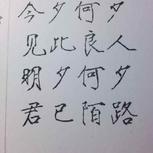 今夕何夕
见此良人
明夕何夕
君已陌路